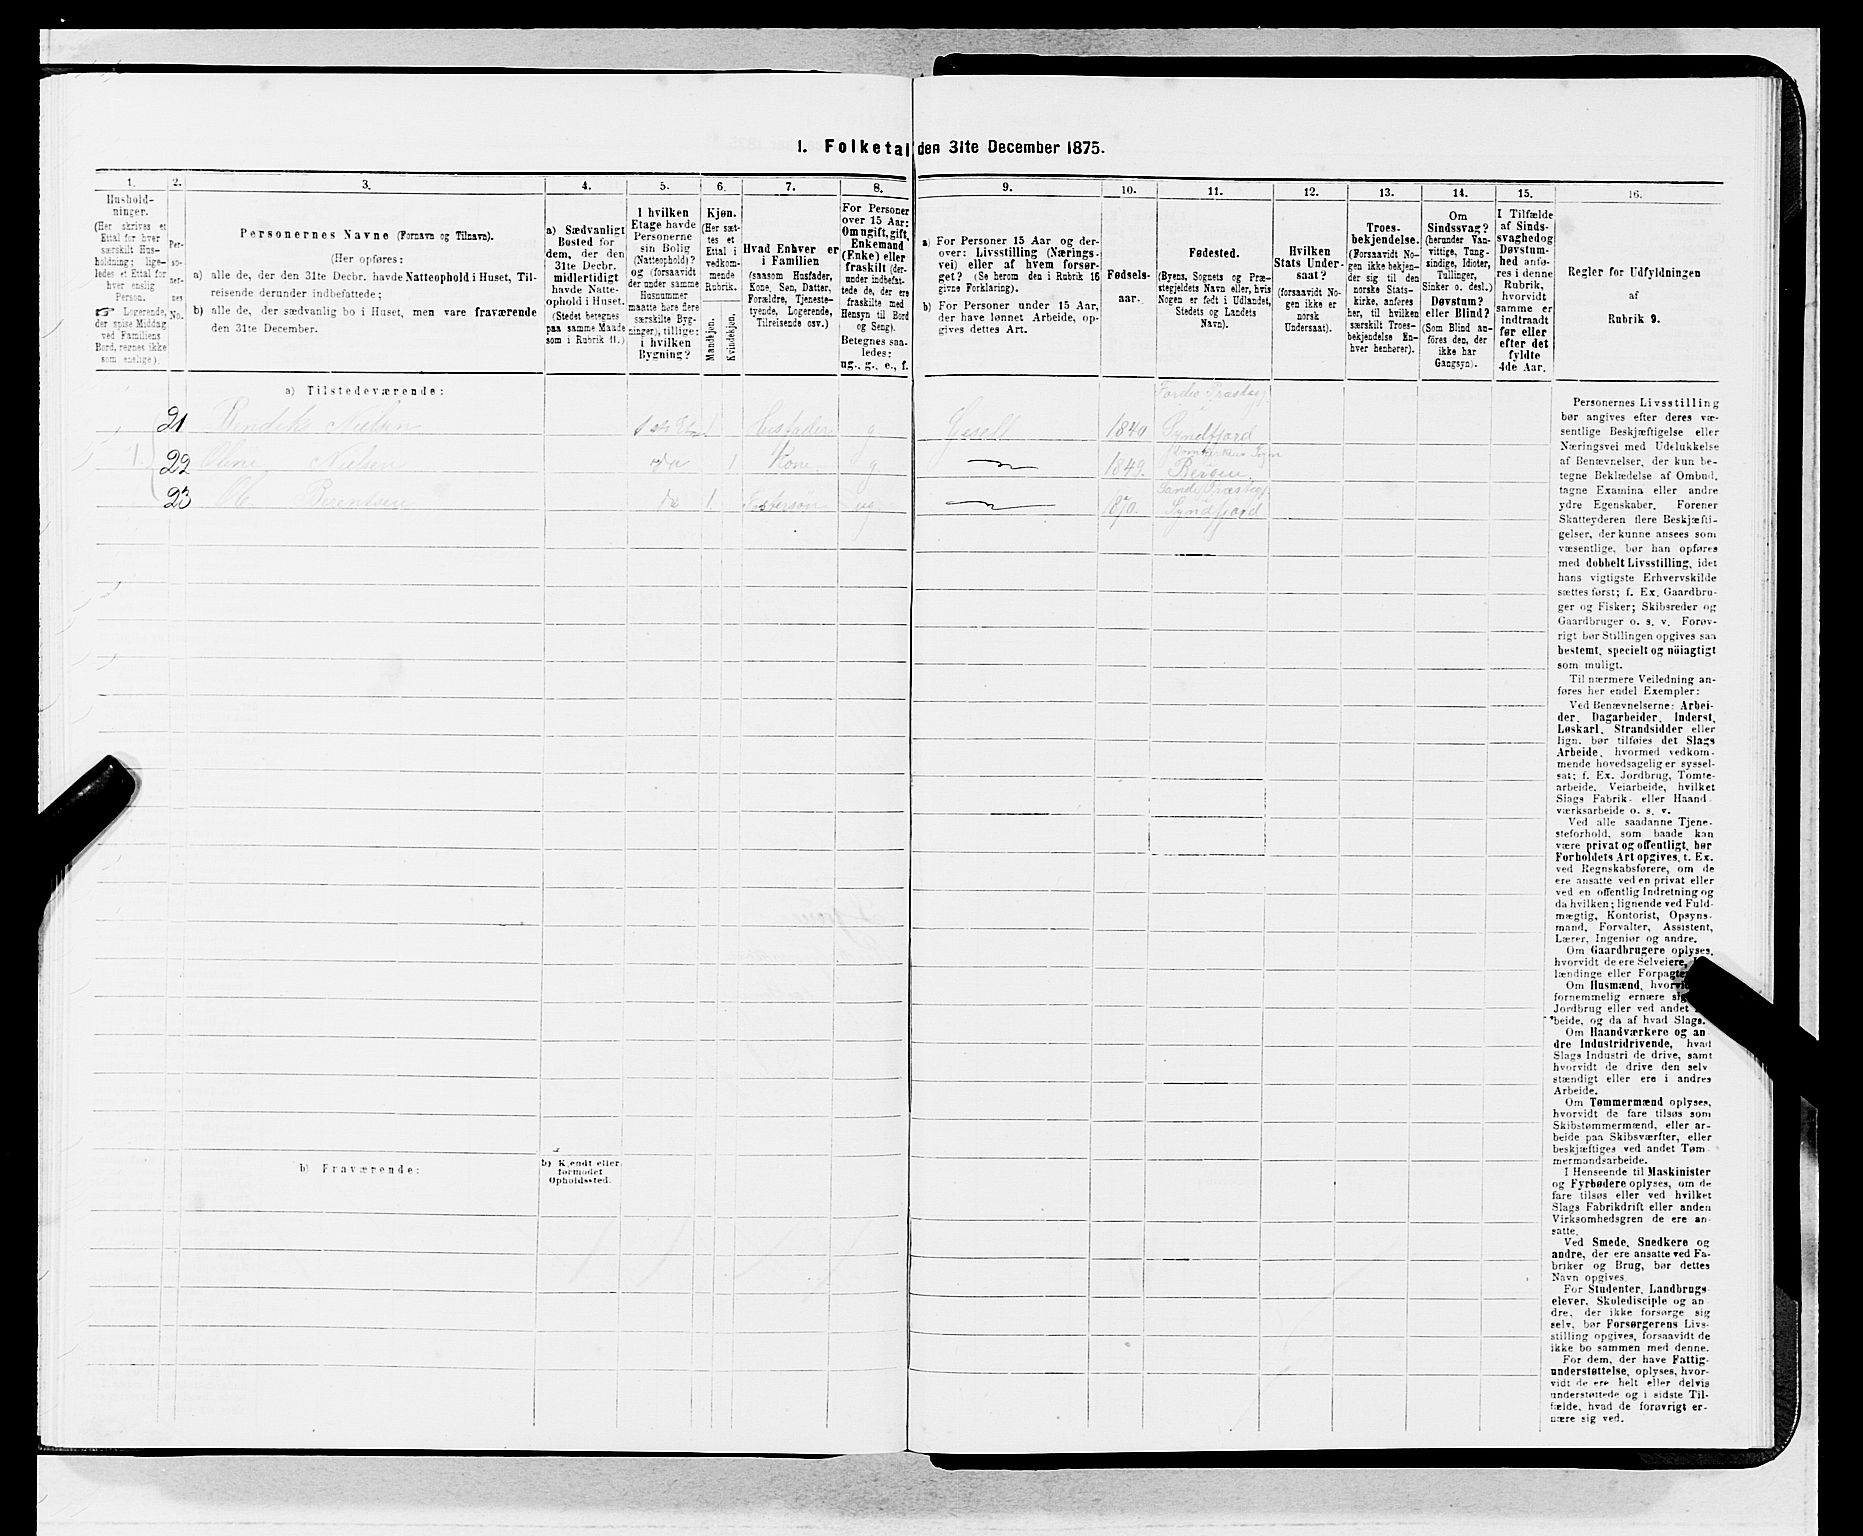 1. Folketal den 31te December 1875.
1.
Hushold-
ninger.
(Her skrives et
Ettal for hver
særskilt Hus-
holdning; lige-
ledes et Ettal for
hver enslig
Person.
☞ Logerende,
der spise Middag
ved Familiens
Bord, regnes ikke
som enslige).
2.
Per-
so-
ner-
nes
No.
3.
Personernes Navne (Fornavn og Tilnavn).
(Her opføres:
a) alle de, der den 31te Decbr. havde Natteophold i Huset, Til-
reisende derunder indbefattede;
b) alle de, der sædvanlig bo i Huset, men vare fraværende
den 31te December.
4.
a) Sædvanligt
Bosted for
dem, der den
31te Decbr.
midlertidigt
havde Natte-
ophold i Huset.
(Stedet betegnes
paa samme Maade
som i Rubrik 11.)
5.
I hvilken
Etage havde
Personerne
sin Bolig
(Natteophold)?
og (forsaavidt
der under samme
Husnummer
maatte høre flere
særskilte Byg-
ninger), tillige:
i hvilken
Bygning?
6.
Kjøn.
(Her sæt-
tes et
Ettal i
vedkom-
mende
Rubrik.
Mandkjøn.
Kvindekjøn.
7.
Hvad Enhver er
i Familien
(saasom Husfader,
Kone, Søn, Datter,
Forældre, Tjeneste-
tyende, Logerende,
Tilreisende osv.)
8.
For Personer
over 15 Aar:
Om ugift, gift,
Enkemand
(Enke) eller
fraskilt (der-
under indbefat-
tede de, der ere
fraskilte med
Hensyn til Bord
og Seng).
Betegnes saa-
ledes:
ug., g., e., f.
9.
a) For Personer 15 Aar og der-
over: Livsstilling (Nærings-
vei) eller af hvem forsør-
get? (Se herom den i Rubrik 16
givne Forklaring).
b) For Personer under 15 Aar,
der have lønnet Arbeide, op-
gives dettes Art.
10.
Fødsels-
aar.
11.
Fødested.
(Byens, Sognets og Præ-
stegjeldets Navn eller, hvis
Nogen er født i Udlandet,
Stedets og Landets
Navn).
12.
Hvilken
Stats Under-
saat?
(forsaavidt No-
gen ikke er
norsk
Undersaat).
13.
Troes-
bekjendelse.
(Forsaavidt No-
gen ikke bekjen-
der sig til den
norske Stats-
kirke, anføres
her, til hvilken
særskilt Troes-
bekjendelse En-
hver henhører).
14.
Om
Sindssvag?
(herunder Van-
vittige, Tung-
sindige, Idioter,
Tullinger,
Sinker o. desl.)
Døvstum?
eller Blind?
(Som Blind an-
føres den, der
ikke har
Gangsyn).
15.
I Tilfælde
af Sinds-
svaghed og
Døvstum-
hed anfø-
res i denne
Rubrik,
hvorvidt
samme er
indtraadt
før eller
efter det
fyldte
4de Aar.
16.
Regler for Udfyldningen
af
Rubrik 9.
a) Tilstedeværende:
21 Bendik Nielsen 1ste Et. 1 Husfader g Gesell 1840 Førde Præstegj. Syndfjord
1. 22 Oline Nielsen do 1 Kone g 1849. Domkirkens Sogn Bergen
23 Ole Berentsen do 1. ug 1870. Syndfjord
b) Fraværende:
b) Kjendt eller
formodet
Opholdssted.
Personernes Livsstilling
bør angives efter deres væ-
sentlige Beskjæftigelse eller
Næringsvei med Udelukkelse
af Benævnelser, der kun be-
tegne Beklædelse af Ombud,
tagne Examina eller andre
ydre Egenskaber. Forener
Skatteyderen flere Beskjæfti-
gelser, der kunne ansees som
væsentlige, bør han opføres
med dobbelt Livsstilling, idet
hans vigtigste Erhvervskilde
sættes først; f. Ex. Gaardbru-
ger og Fisker; Skibsreder og
Gaardbruger o. s. v. Forøv-
rigt bør Stillingen opgives saa
bestemt, specielt og nöiagtigt
som muligt.
Til nærmere Veiledning an-
føres her endel Exempler:
Ved Benævnelserne: Arbei-
der, Dagarbeider, Inderst,
Løskarl, Strandsidder eller
lign. bør tilføies det Slags
Arbeide, hvormed vedkom-
mende hovedsagelig er syssel-
sat; f. Ex. Jordbrug, Tomte-
arbeide, Veiarbeide, hvilket
Slags Fabrik- eller Haand-
værksarbeide o. s. v.
Ved alle saadanne Tjene-
steforhold, som baade kan
være privat og offentligt, bør
Forholdets Art opgives, t. Ex.
ved Regnskabsførere, om de
ere ansatte ved en privat eller
ved en offentlig Indretning og
da hvilken; lignende ved Fuld-
mægtig, Kontorist, Opsyns-
mand, Forvalter, Assistent,
Lærer, Ingeniør og andre.
Om Gaardbrugere oplyses,
hvorvidt de ere Selveiere,
lændinge eller
Om Husmænd,
fornemmelig ernære
Jordbrug eller ved andet
beide, og da af hvad Slags.
Om Haandværkere og an-
dre Industridrivende, hvad
Slags Industri de drive, samt
hvorvidt de drive den selv-
stændigt eller ere i andres
Arbeide.
Om Tømmermænd oplyses,
hvorvidt de fare tilsøs som
Skibstømmermænd, eller ar-
beide paa Skibsværfter, eller
beskjæftiges ved andet Tøm-
mermandsarbeide.
I Henseende til Maskinister
og Fyrbødere oplyses, om de
fare tilsøs eller ved hvilket
Slags Fabrikdrift eller anden
Virksomhedsgren de ere an-
satte.
Ved Smede, Snedkere og
andre, der ere ansatte ved Fa-
briker og Brug, bør dettes
Navn opgives.
For Studenter, Landbrugs-
elever, Skoledisciple og an-
dre, der ikke forsørge sig
selv, bør Forsørgerens Livs-
stilling opgives, forsaavidt de
ikke bo sammen med denne.
For dem, der have Fattig-
understøttelse, oplyses, hvor-
vidt de ere helt eller delvis
understøttede og i sidste Til-
fælde, hvad de forøvrigt er-
nære sig ved.